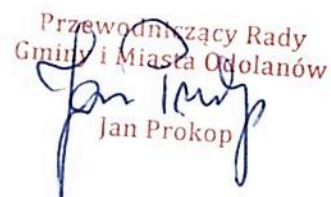 Przewodniczący Rady
Gminy i Miasta Odolanów
Jan Prokop